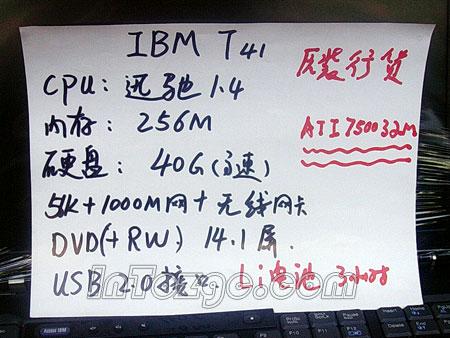 IBM T41
原装行货
CPU: 迅驰 1.4
ATI 7500 32M
内存: 256M
硬盘: 40G(高速)
56K+1000M网+无线网卡
DVD(+RW) 14.1屏.
USB 2.0接口. Li电池 3小时
Access IBM